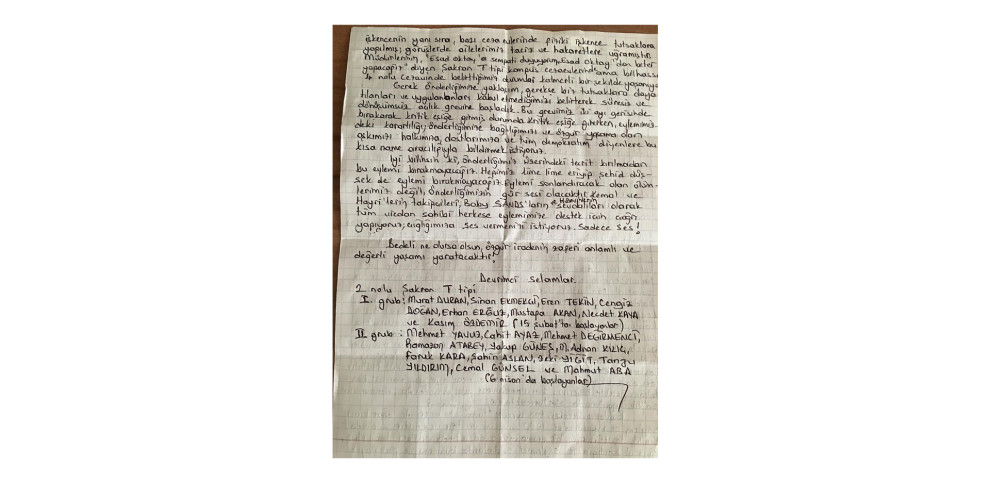 işkencenin yanı sıra, bazı ceza evlerinde fiziki işkence tutsaklara
yapılmış; görüşlerde ailelerimiz taciz ve hakaretlere uğramıştır.
Müdürlerinin, "Esad Oktay'a sempati duyuyorum, Esad Oktay'dan beter
yapacağız" diyen Şakran T tipi kampüs cezaevlerinde ama bilhassa
4 nolu cezaevinde belirttiğimiz durumlar katmerli bir şekilde yaşanıyor.
Gerek önderliğimize yaklaşım, gerekse biz tutsaklara daya-
tılanları ve uygulananları kabul etmediğimizi belirterek süresiz ve
dönüşümsüz açlık grevine başladık. Bu grevimiz iki ayı gerisinde
bırakarak kritik eşiğe girmiş durumda. Kritik eşiğe girerken, eylemimiz-
deki kararlılığı; önderliğimize bağlılığımızı ve özgür yaşama olan
aşkımızı halkımıza, dostlarımıza ve tüm demokratım diyenlere bu
kısa name aracılığıyla bildirmek istiyoruz.
İyi bilinsin ki, önderliğimiz üzerindeki tecrit kırılmadan
bu eylemi bırakmayacağız. Hepimiz lime lime eriyip şehid düş-
sek de eylemi bırakmayacağız. Eylemi sonlandıracak olan ölüm-
lerimiz değil, önderliğimizin gür sesi olacaktır. Kemal ve
Hayri'lerin takipçileri, Boby SANDS'ların sevdalıları olarak
tüm vicdan sahibi herkese eylemimize destek için çağrı
yapıyoruz; çığlığımıza ses vermenizi istiyoruz. Sadece ses!
Bedeli ne olursa olsun, özgür iradenin zaferi anlamlı ve
değerli yaşamı yaratacaktır;
Devrimci Selamlar.
2 nolu Şakran T tipi
I. grub: Murat DURAN, Sinan EKMEKCİ, Eren TEKİN, Cengiz
DOĞAN, Erhan ERĞUZ, Mustafa AKAN, Necdet KAYA
ve Kasım ÖZDEMİR (15 şubat'ta başlayanlar)
II grub: Mehmet YAVUZ, Cahit AYAZ, Mehmet DEĞİRMENCİ,
Ramazan ATABEY, Yakup GÜNEŞ, M. Adnan KILIÇ,
Faruk KARA, Şahin ASLAN, Zeki YİĞİT, Tanju
YILDIRIM, Cemal GÜNSEL ve Mahmut ABA
(6 nisan'da başlayanlar)